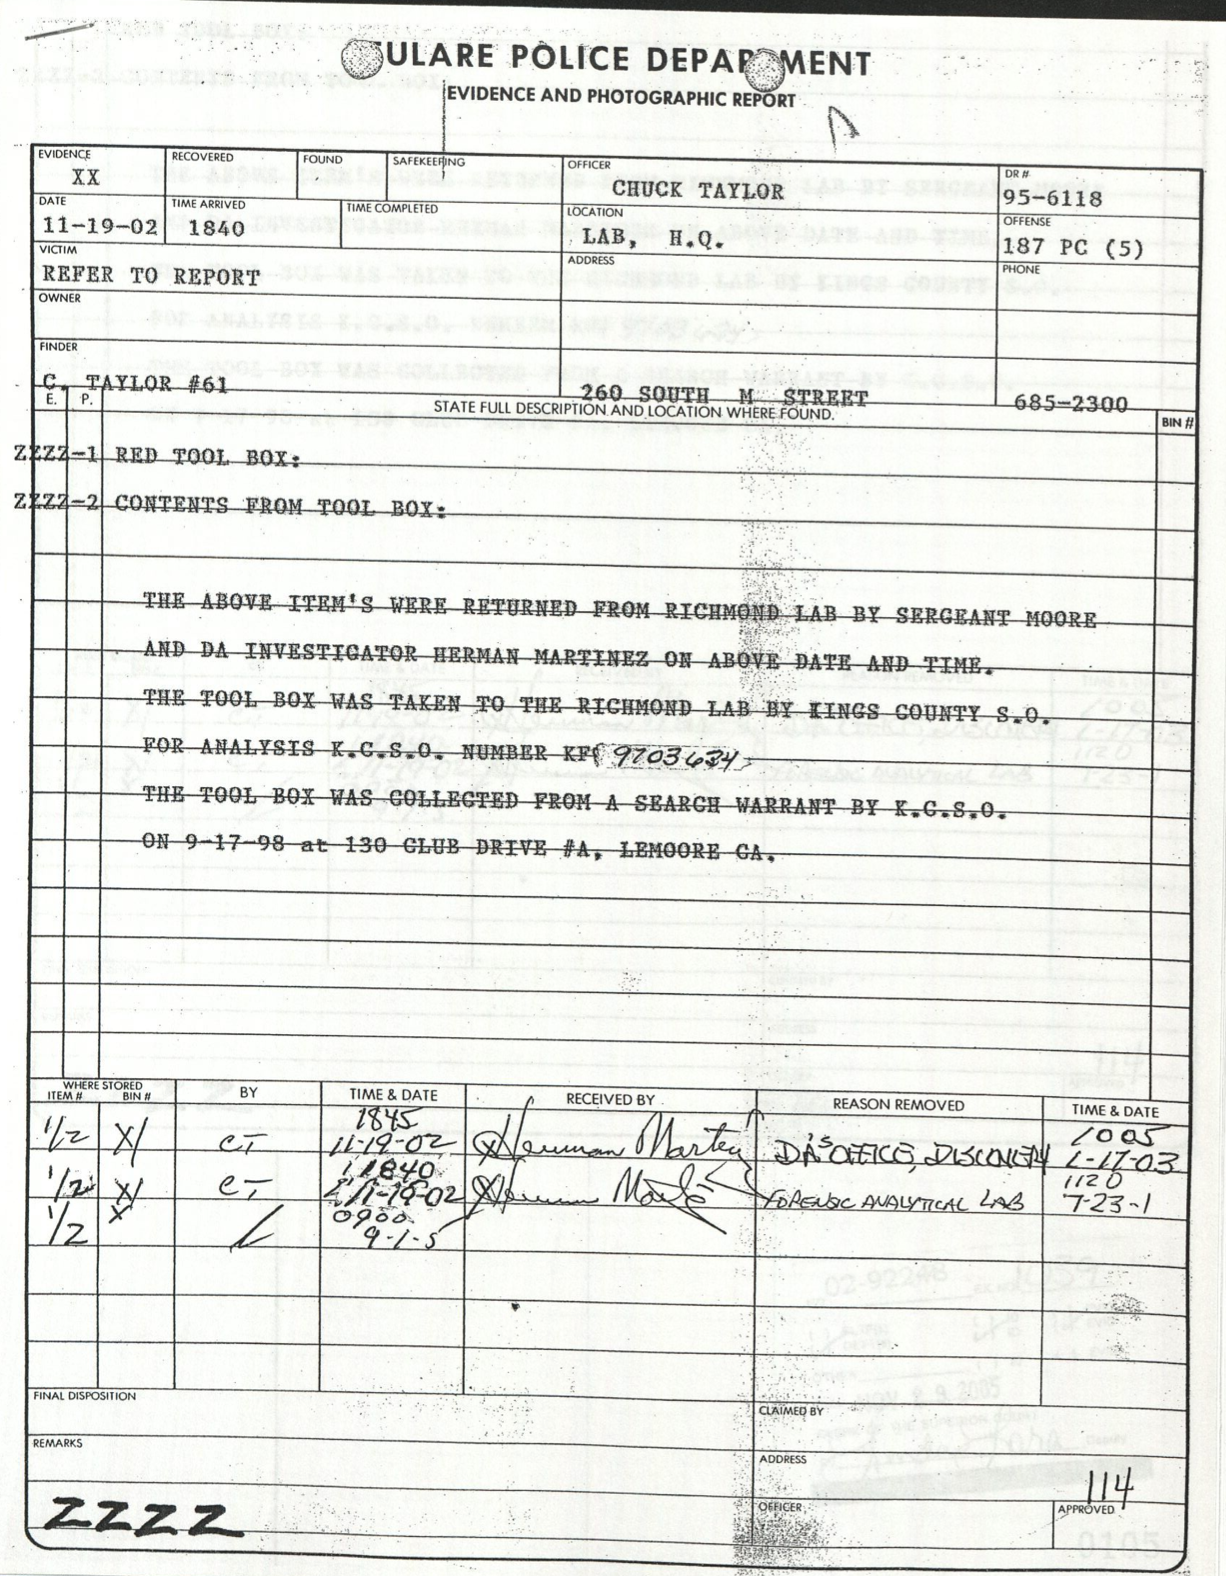 ULARE POLICE DEPARTMENT
EVIDENCE AND PHOTOGRAPHIC REPORT
EVIDENCE XX RECOVERED FOUND SAFEKEEPING OFFICER CHUCK TAYLOR DR # 95-6118
DATE 11-19-02 TIME ARRIVED 1840 TIME COMPLETED LOCATION LAB, H.Q. OFFENSE 187 PC (5)
VICTIM REFER TO REPORT ADDRESS PHONE
OWNER
FINDER
C. TAYLOR #61 260 SOUTH M STREET 685-2300
E. P. STATE FULL DESCRIPTION AND LOCATION WHERE FOUND. BIN #
ZZZZ-1 RED TOOL BOX:
ZZZZ-2 CONTENTS FROM TOOL BOX:
THE ABOVE ITEM'S WERE RETURNED FROM RICHMOND LAB BY SERGEANT MOORE
AND DA INVESTIGATOR HERMAN MARTINEZ ON ABOVE DATE AND TIME.
THE TOOL BOX WAS TAKEN TO THE RICHMOND LAB BY KINGS COUNTY S.O.
FOR ANALYSIS K.C.S.O. NUMBER 9703634
THE TOOL BOX WAS COLLECTED FROM A SEARCH WARRANT BY K.C.S.O.
ON 9-17-98 at 130 CLUB DRIVE #A, LEMOORE CA.
WHERE STORED
ITEM # BIN # BY TIME & DATE RECEIVED BY REASON REMOVED TIME & DATE
1/2 X/ CT 1845 11-19-02 Herman DA'S OFFICE, DISCOVERY 1005 1-17-03
1/2 X/ CT 1840 11-19-02 FORENSIC ANALYTICAL LAB 1120 7-23-1
1/2 X 0900 9-1-5
FINAL DISPOSITION CLAIMED BY
REMARKS ADDRESS
ZZZZ OFFICER 114 APPROVED
0105